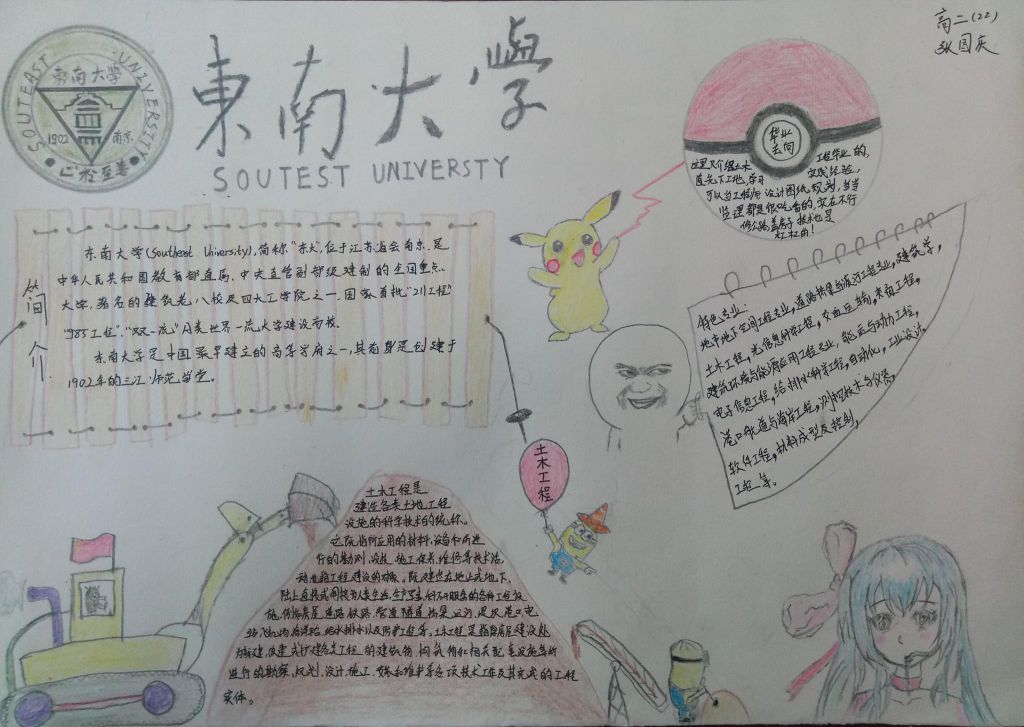 高二(22)
张国庆
SOUTEAST UNIVERSITY
東南大學
1902 南京
止於至善
東南大學
SOUTEST UNIVERSTY
毕业
去向
这里只介绍土木工程毕业的,
首先下工地,学习实践经验,
可以当工程师 设计图纸 规划,当当
监理都是很吃香的,实在不行
修公路,盖房子 技术也是
杠杠的!
简介
东南大学(Southeast University),简称"东大",位于江苏省会南京,是
中华人民共和国教育部直属、中央直管副部级建制的全国重点
大学,著名的建筑老八校及四大工学院之一,国家首批"211工程"
"985工程","双一流"A类世界一流大学建设高校。
东南大学是中国最早建立的高等学府之一,其前身是创建于
1902年的三江师范学堂。
特色专业:
地下空间工程专业,道路桥梁与渡河工程专业,建筑学,
土木工程,光信息科学,交通运输,
建筑环境与能源应用工程专业,能源与动力工程,
电子信息工程,给排水科学工程,自动化,工业设计,
港口航道与海岸工程,测控技术与仪器,
软件工程,材料成型及控制,
工程等。
土木工程
土木工程是
建造各类土地工程
设施的科学技术的统称。
它既指所应用的材料、设备和所进
行的勘测、设计、施工、保养、维修等技术活
动,也指工程建设的对象。即建造在地上或地下、
陆上,直接或间接为人类生活、生产、军事、科研服务的各种工程设
施,例如房屋、道路、铁路、管道、隧道、桥梁、运河、堤坝、港口、电
站、飞机场、海洋平台、给水排水以及防护工程等。土木工程是指除房屋建设
为新建、改建或扩建各类工程的建筑物、构筑物和相关配套设施等所
进行的勘察、规划、设计、施工、安装和维护等各项技术工作及其完成的工程
实体。